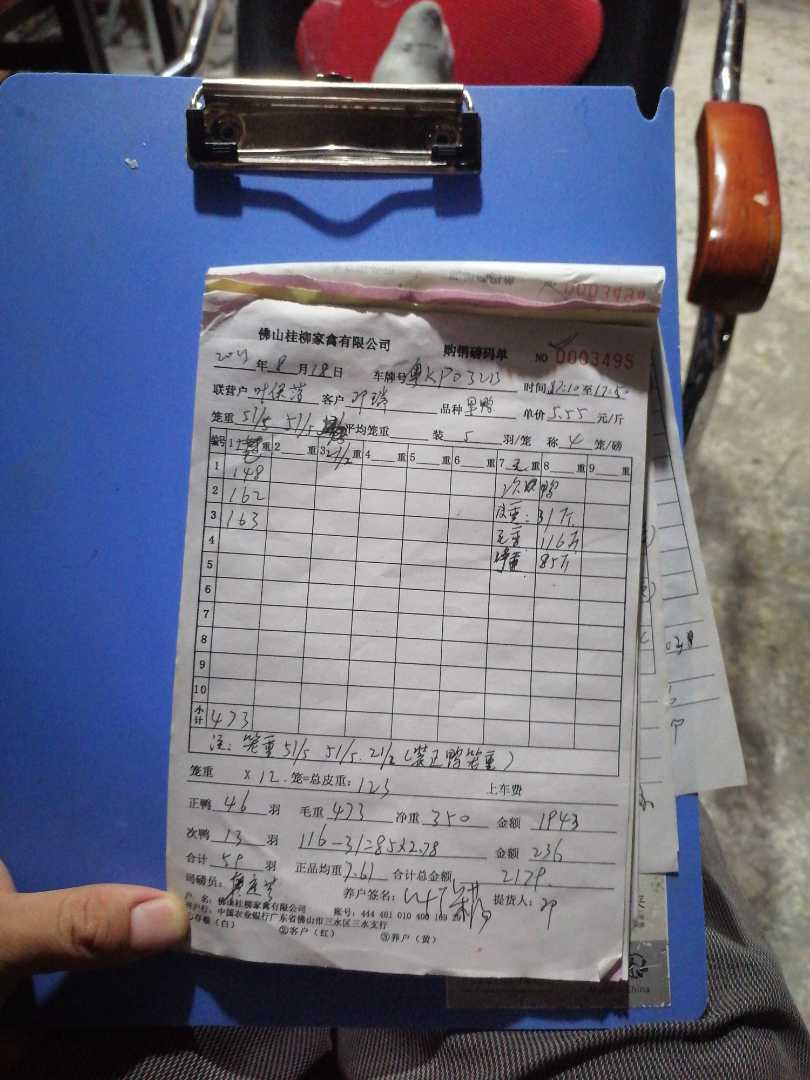 0003494
佛山桂柳家禽有限公司 购销磅码单 NO 0003495
年8月18日 车牌号粤KP0323 时间17:10至17:50
联营户叶保 客户邓瑞 品种 鸭 单价5.55元/斤
笼重51/5 51/5 平均笼重 装5羽/笼 称4笼/磅
编号 1 重 2 重 3 21/2 重 4 重 5 重 6 重 7 重 8 重 9 重
1 148 次 鸭
2 162 皮重: 31斤
3 163 毛重 116斤
4 净重 85斤
5
6
7
8
9
10
小计 473
注: 笼重 51/5 51/5. 21/2 (装正鸭笼重)
笼重 X12.笼=总皮重: 123 上车费
正鸭46羽 毛重473 净重350 金额1943
次鸭13羽 116-31=85X2.78 金额236
合计59羽 正品均重7.61 合计总金额2179
司磅员: 养户签名: 叶 提货人: 邓
户 名: 佛山桂柳家禽有限公司 账号: 444 401 010 400 169
开户行: 中国农业银行广东省佛山市三水区三水支行
存根(白) ②客户(红) ③养户(黄)
China